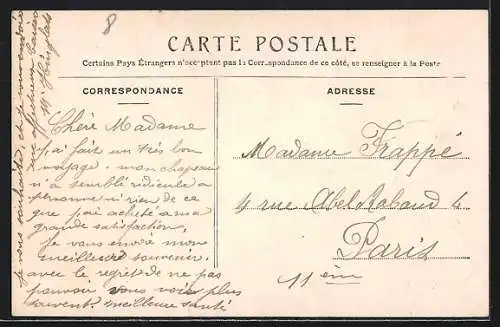 8
CARTE POSTALE
Certains Pays Étrangers n'acceptant pas la Correspondance de ce côté, se renseigner à la Poste
CORRESPONDANCE
Chère Madame
j'ai fait un très bon
voyage. mon chapeau
n'a semblé ridicule a
personne ni rien de ce
que j'ai acheté a ma
grande satisfaction,
Je vous envoie mon
meilleure souvenir.
avec le regret de ne pas
pouvoir vous voir plus
souvent. meilleure santé
je vous souhaite, et je vous envoie
une affectueux
ADRESSE
Madame Frappé
4 rue Abel Rabaud 4
Paris
11ème